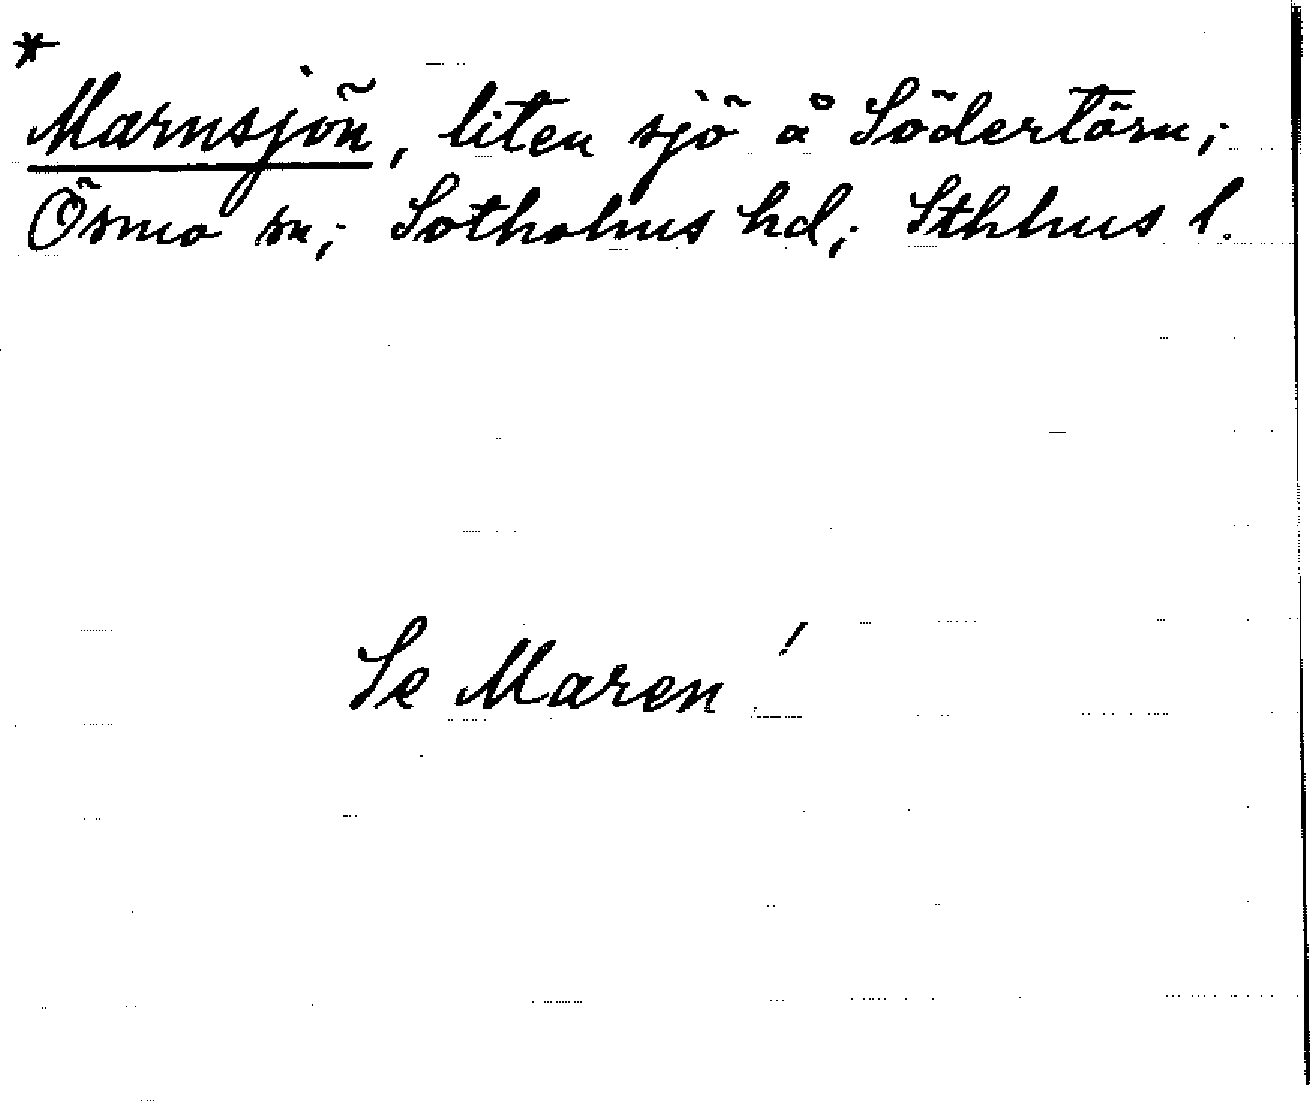 *
Marnsjön, liten sjö å Södertörn;
Ösmo sn; Sotholms hd; Sthlms l.
Se Maren!